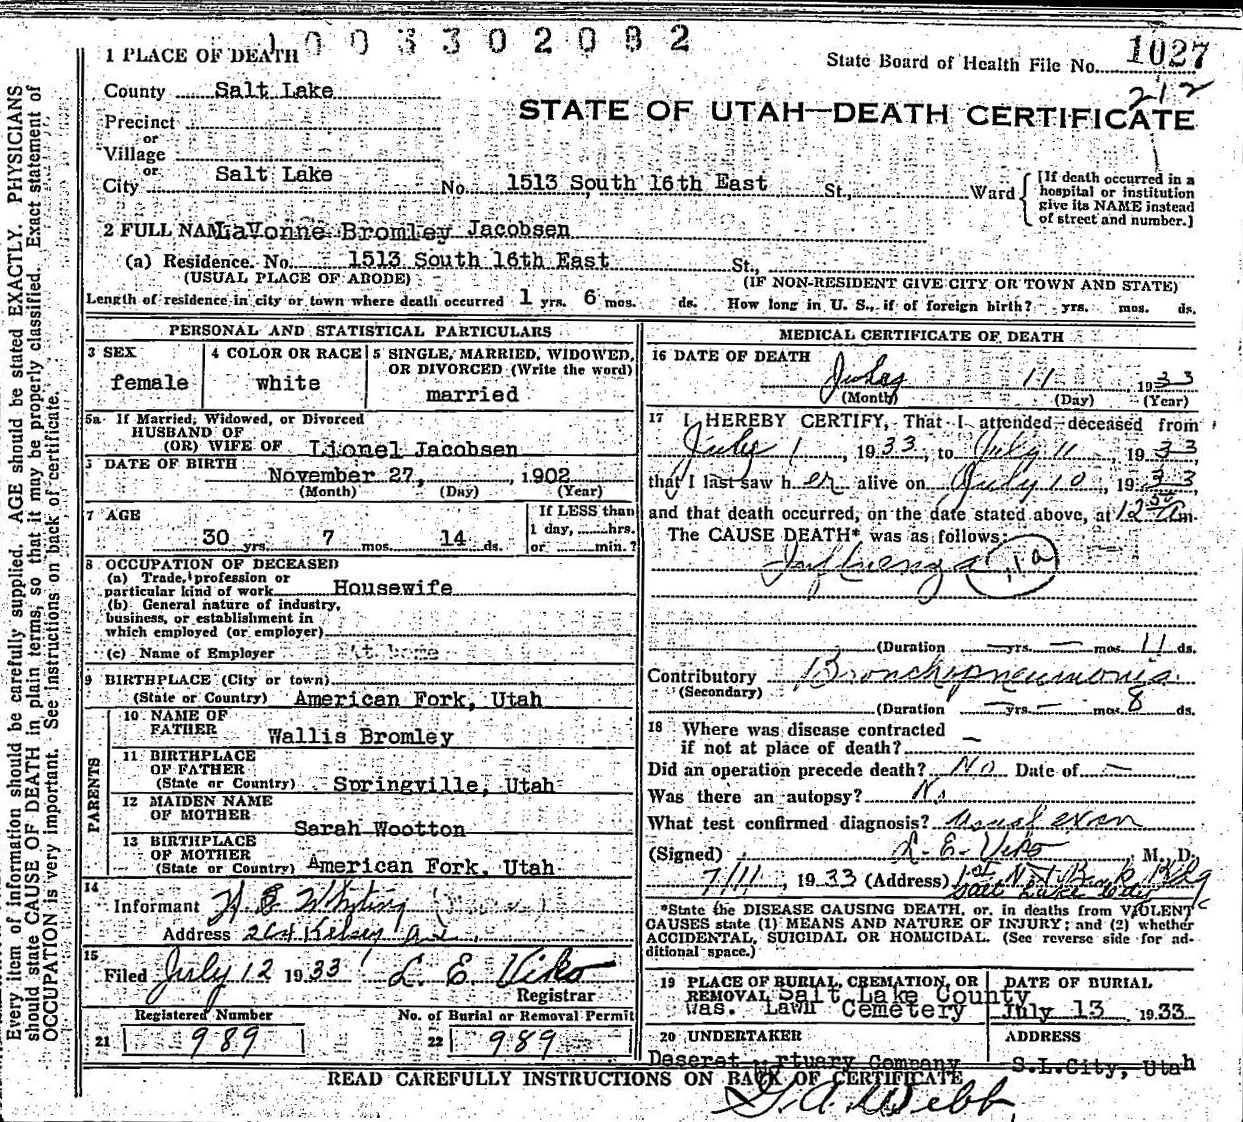 1003302082
1 PLACE OF DEATH
State Board of Health File No. 1027
212
County Salt Lake
STATE OF UTAH—DEATH CERTIFICATE
Precinct
or
Village
or
City Salt Lake No. 1513 South 16th East St., Ward
[If death occurred in a hospital or institution give its NAME instead of street and number.]
2 FULL NAME LaVonne Bromley Jacobsen
(a) Residence. No. 1513 South 16th East St.,
(USUAL PLACE OF ABODE) (IF NON-RESIDENT GIVE CITY OR TOWN AND STATE)
Length of residence in city or town where death occurred 1 yrs. 6 mos. ds. How long in U. S., if of foreign birth? yrs. mos. ds.
PERSONAL AND STATISTICAL PARTICULARS
3 SEX
female
4 COLOR OR RACE
white
5 SINGLE, MARRIED, WIDOWED,
OR DIVORCED (Write the word)
married
5a If Married, Widowed, or Divorced
HUSBAND OF
(OR) WIFE OF Lionel Jacobsen
DATE OF BIRTH
November 27, 1902
(Month) (Day) (Year)
7 AGE
30 yrs. 7 mos. 14 ds.
If LESS than
1 day, hrs.
or min.?
8 OCCUPATION OF DECEASED
(a) Trade, profession or
particular kind of work Housewife
(b) General nature of industry,
business, or establishment in
which employed (or employer)
(c) Name of Employer At home
9 BIRTHPLACE (City or town)
(State or Country) American Fork, Utah
PARENTS
10 NAME OF
FATHER
Wallis Bromley
11 BIRTHPLACE
OF FATHER
(State or Country) Springville, Utah
12 MAIDEN NAME
OF MOTHER
Sarah Wootton
13 BIRTHPLACE
OF MOTHER
(State or Country) American Fork, Utah
14
Informant
Address Kelsey Ave
15
Filed July 12 1933 L. E. Viko
Registrar
Registered Number
21 989
No. of Burial or Removal Permit
22 989
MEDICAL CERTIFICATE OF DEATH
16 DATE OF DEATH
July 11 1933
(Month) (Day) (Year)
17 I HEREBY CERTIFY, That I attended deceased from
July 1, 1933, to July 11, 1933
that I last saw her alive on July 10, 1933
and that death occurred, on the date stated above, at 12 50 m.
The CAUSE DEATH* was as follows:
Influenza 11a
(Duration yrs. mos. 11 ds.
Contributory Bronchopneumonia
(Secondary)
(Duration yrs. mos. 8 ds.
18 Where was disease contracted
if not at place of death?
Did an operation precede death? No Date of
Was there an autopsy? No
What test confirmed diagnosis? usual exam
(Signed) L. E. Viko M. D.
7/11, 1933 (Address) 1st Nat Bank Bldg
Salt Lake City
*State the DISEASE CAUSING DEATH, or, in deaths from VIOLENT
CAUSES state (1) MEANS AND NATURE OF INJURY; and (2) whether
ACCIDENTAL, SUICIDAL OR HOMICIDAL. (See reverse side for ad-
ditional space.)
19 PLACE OF BURIAL, CREMATION, OR
REMOVAL Salt Lake County
Was. Lawn Cemetery
DATE OF BURIAL
July 13 1933
20 UNDERTAKER
Deseret Mortuary Company
ADDRESS
S.L.City, Utah
READ CAREFULLY INSTRUCTIONS ON BACK OF CERTIFICATE
G. A. Webb
Every item of information should be carefully supplied. AGE should be stated EXACTLY. PHYSICIANS
should state CAUSE OF DEATH in plain terms, so that it may be properly classified. Exact statement of
OCCUPATION is very important. See instructions on back of certificate.